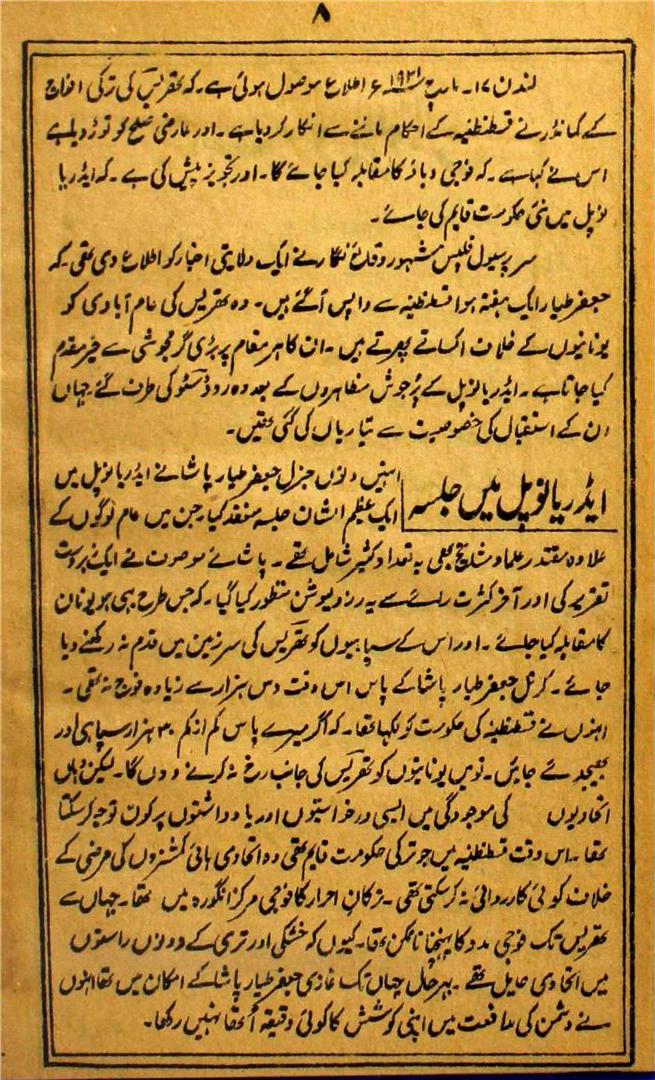 ۸
لندن ۱۷۔ مارچ ۱۹۲۱ء اطلاع موصول ہوئی ہے۔ کہ تھریس کی ترکی افواج
کے کمانڈر نے قسطنطنیہ کے احکام ماننے سے انکار کر دیا ہے۔ اور عارضی صلح کو توڑ دیا ہے
اس نے کہا ہے۔ کہ فوجی دباؤ کا مقابلہ کیا جائے گا۔ اور تجویز پیش کی ہے۔ کہ ایڈریا
نوپل میں نئی حکومت قایم کی جائے۔
سر پرسیول فلپس مشہور وقائع نگار نے ایک ولایتی اخبار کو اطلاع دی تھی۔ کہ
جعفر طیار ایک ہفتہ ہوا قسطنطنیہ سے واپس آگئے ہیں۔ وہ تھریس کی عام آبادی کو
یونانیوں کے خلاف اکساتے پھرتے ہیں۔ ان کا ہر مقام پر بڑی گرمجوشی سے خیر مقدم
کیا جاتا ہے۔ ایڈریانوپل کے پُرجوش مظاہروں کے بعد وہ روڈسٹو کی طرف گئے جہاں
ان کے استقبال کی خصوصیت سے تیاریاں کی گئی تھیں۔
ایڈریانوپل میں جلسہ
انہیں دنوں جنرل جعفر طیار پاشا نے ایڈریانوپل میں
ایک عظیم الشان جلسہ منعقد کیا۔ جس میں عام لوگوں کے
علاوہ مقتدر علماء و مشائخ بھی بہ تعداد کثیر شامل تھے۔ پاشائے موصوف نے ایک زبردست
تقریر کی اور آخر کثرت رائے سے یہ رزولیوشن منظور کیا گیا۔ کہ جس طرح بھی ہو یونان
کا مقابلہ کیا جائے۔ اور اس کے سپاہیوں کو تھریس کی سرزمین میں قدم نہ رکھنے دیا
جائے۔ کرنل جعفر طیار پاشا کے پاس اس وقت دس ہزار سے زیادہ فوج نہ تھی۔
انہوں نے قسطنطنیہ کی حکومت کو لکھا تھا۔ کہ اگر میرے پاس کم از کم ۳۰ ہزار سپاہی اور
بھیجدئے جائیں۔ تو میں یونانیوں کو تھریس کی جانب رخ نہ کرنے دوں گا۔ لیکن وہاں
اتحادیوں کی موجودگی میں ایسی درخواستوں اور یادداشتوں پر کون توجہ کر سکتا
تھا۔ اس وقت قسطنطنیہ میں جو ترکی حکومت قایم تھی وہ اتحادی ہائی کمشنروں کی مرضی کے
خلاف کوئی کارروائی نہ کر سکتی تھی۔ ترکان احرار کا فوجی مرکز انگورہ میں تھا۔ جہاں سے
تھریس تک فوجی مدد کا پہنچنا ناممکن تھا۔ کیوں کہ خشکی اور تری کے دونوں راستوں
میں اتحادی حایل تھے۔ بہرحال جہاں تک غازی جعفر طیار پاشا کے امکان میں تھا انہوں
نے دشمن کی مدافعت میں اپنی کوشش کا کوئی دقیقہ اُٹھا نہیں رکھا۔